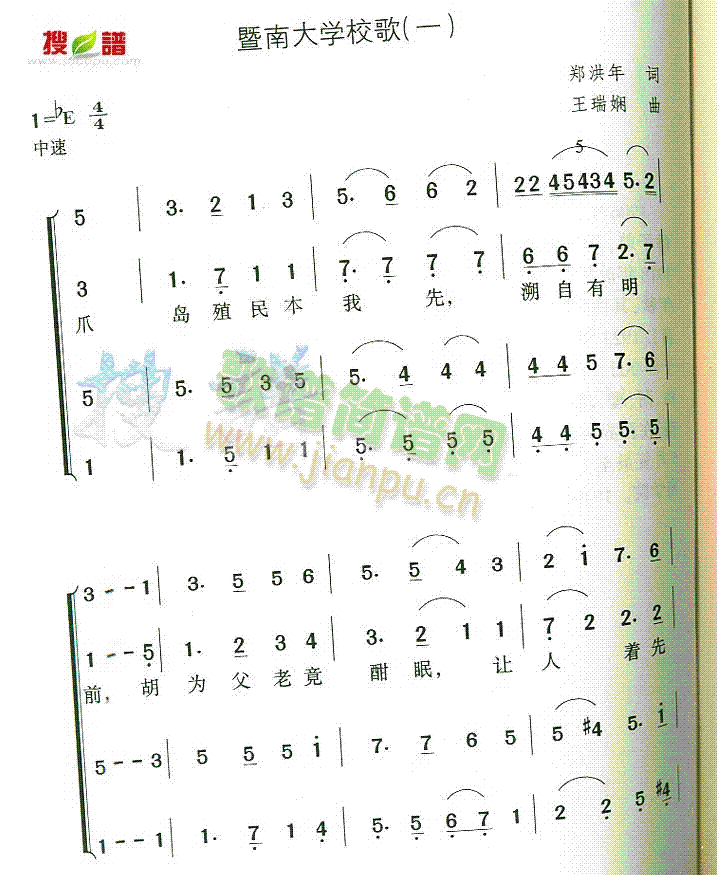 搜谱
www.sooopu.com
暨南大学校歌(一)
郑洪年 词
王瑞娴 曲
1=♭E 4/4
中速
5 | 3. 2 1 3 | 5. 6 6 2 | 22 45434 5.2 |
3 | 1. 7 1 1 | 7. 7 7 7 | 6 6 7 2.7 |
爪 岛 殖 民 本 我 先, 溯 自 有 明
5 | 5. 5 3 5 | 5. 4 4 4 | 4 4 5 7. 6 |
1 | 1. 5 1 1 | 5. 5 5 5 | 4 4 5 5. 5 |
歌谱简谱网
www.jianpu.cn
3 - - 1 | 3. 5 5 6 | 5. 5 4 3 | 2 i 7. 6 |
1 - - 5 | 1. 2 3 4 | 3. 2 1 1 | 7 2 2. 2 |
前, 胡 为 父 老 竟 酣 眠, 让 人 着 先
5 - - 3 | 5 5 5 i | 7. 7 6 5 | 5 #4 5. i |
1 - - 1 | 1. 7 1 4 | 5. 5 6 7 1 | 2 2 5 #4 |